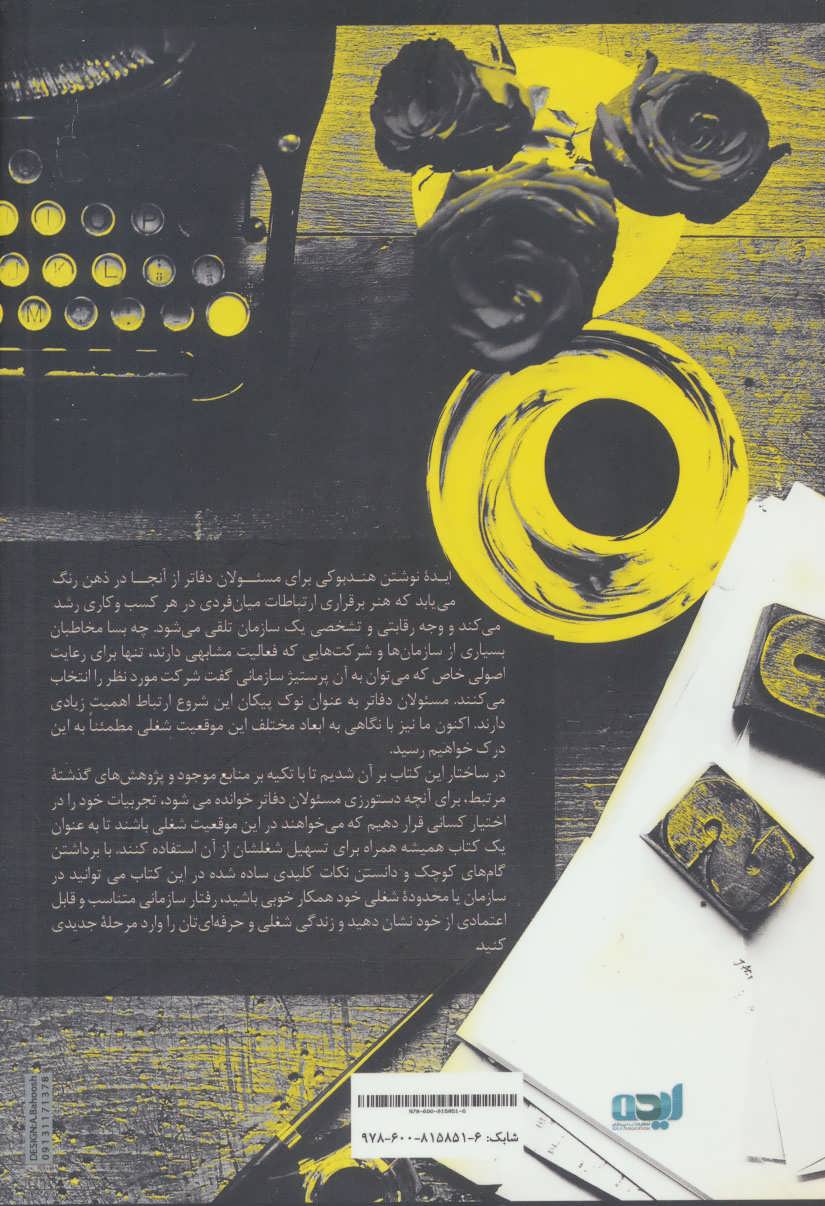 I O P
J K L
M
ایدهٔ نوشتن هندبوکی برای مسئولان دفاتر از آنجا در ذهن رنگ
می‌یابد که هنر برقراری ارتباطات میان‌فردی در هر کسب و کاری رشد
می‌کند و وجه رقابتی و تشخصی یک سازمان تلقی می‌شود. چه بسا مخاطبان
بسیاری از سازمان‌ها و شرکت‌هایی که فعالیت مشابهی دارند، تنها برای رعایت
اصولی خاص که می‌توان به آن پرستیژ سازمانی گفت شرکت مورد نظر را انتخاب
می‌کنند. مسئولان دفاتر به عنوان نوک پیکان این شروع ارتباط اهمیت زیادی
دارند. اکنون ما نیز با نگاهی به ابعاد مختلف این موقعیت شغلی مطمئناً به این
درک خواهیم رسید.
در ساختار این کتاب بر آن شدیم تا با تکیه بر منابع موجود و پژوهش‌های گذشتهٔ
مرتبط، برای آنچه دستورزی مسئولان دفاتر خوانده می شود، تجربیات خود را در
اختیار کسانی قرار دهیم که می‌خواهند در این موقعیت شغلی باشند تا به عنوان
یک کتاب همیشه همراه برای تسهیل شغلشان از آن استفاده کنند. با برداشتن
گام‌های کوچک و دانستن نکات کلیدی ساده شده در این کتاب می توانید در
سازمان یا محدودهٔ شغلی خود همکار خوبی باشید، رفتار سازمانی متناسب و قابل
اعتمادی از خود نشان دهید و زندگی شغلی و حرفه‌ای‌تان را وارد مرحلهٔ جدیدی
کنید.
978-600-815851-6
شابک: ۶-۸۱۵۸۵۱-۶۰۰-۹۷۸
DESIGN:A.Bahoosh
09131171378